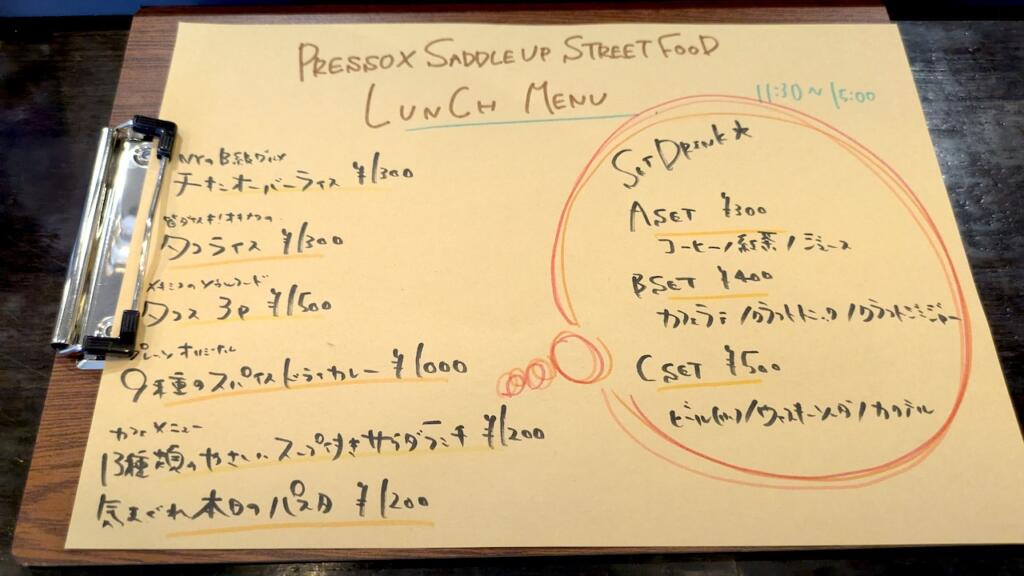 PRESSOX SADDLE UP STREET FOOD
LUNCH MENU
11:30~15:00
NYのB級グルメ
チキンオーバーライス ¥1300
タコライス ¥1300
メキシコのソウルフード
タコス 3P ¥1500
プレーンオリジナル
9種のスパイスドライカレー ¥1000
カフェメニュー
13種類のやさい スープ付きサラダランチ ¥1200
気まぐれ本日のパスタ ¥1200
SET DRINK★
A SET ¥300
コーヒー/紅茶/ジュース
B SET ¥400
カフェラテ/クラフトトニック/クラフトジンジャー
C SET ¥500
ビール/ウィスキーソーダ/カクテル